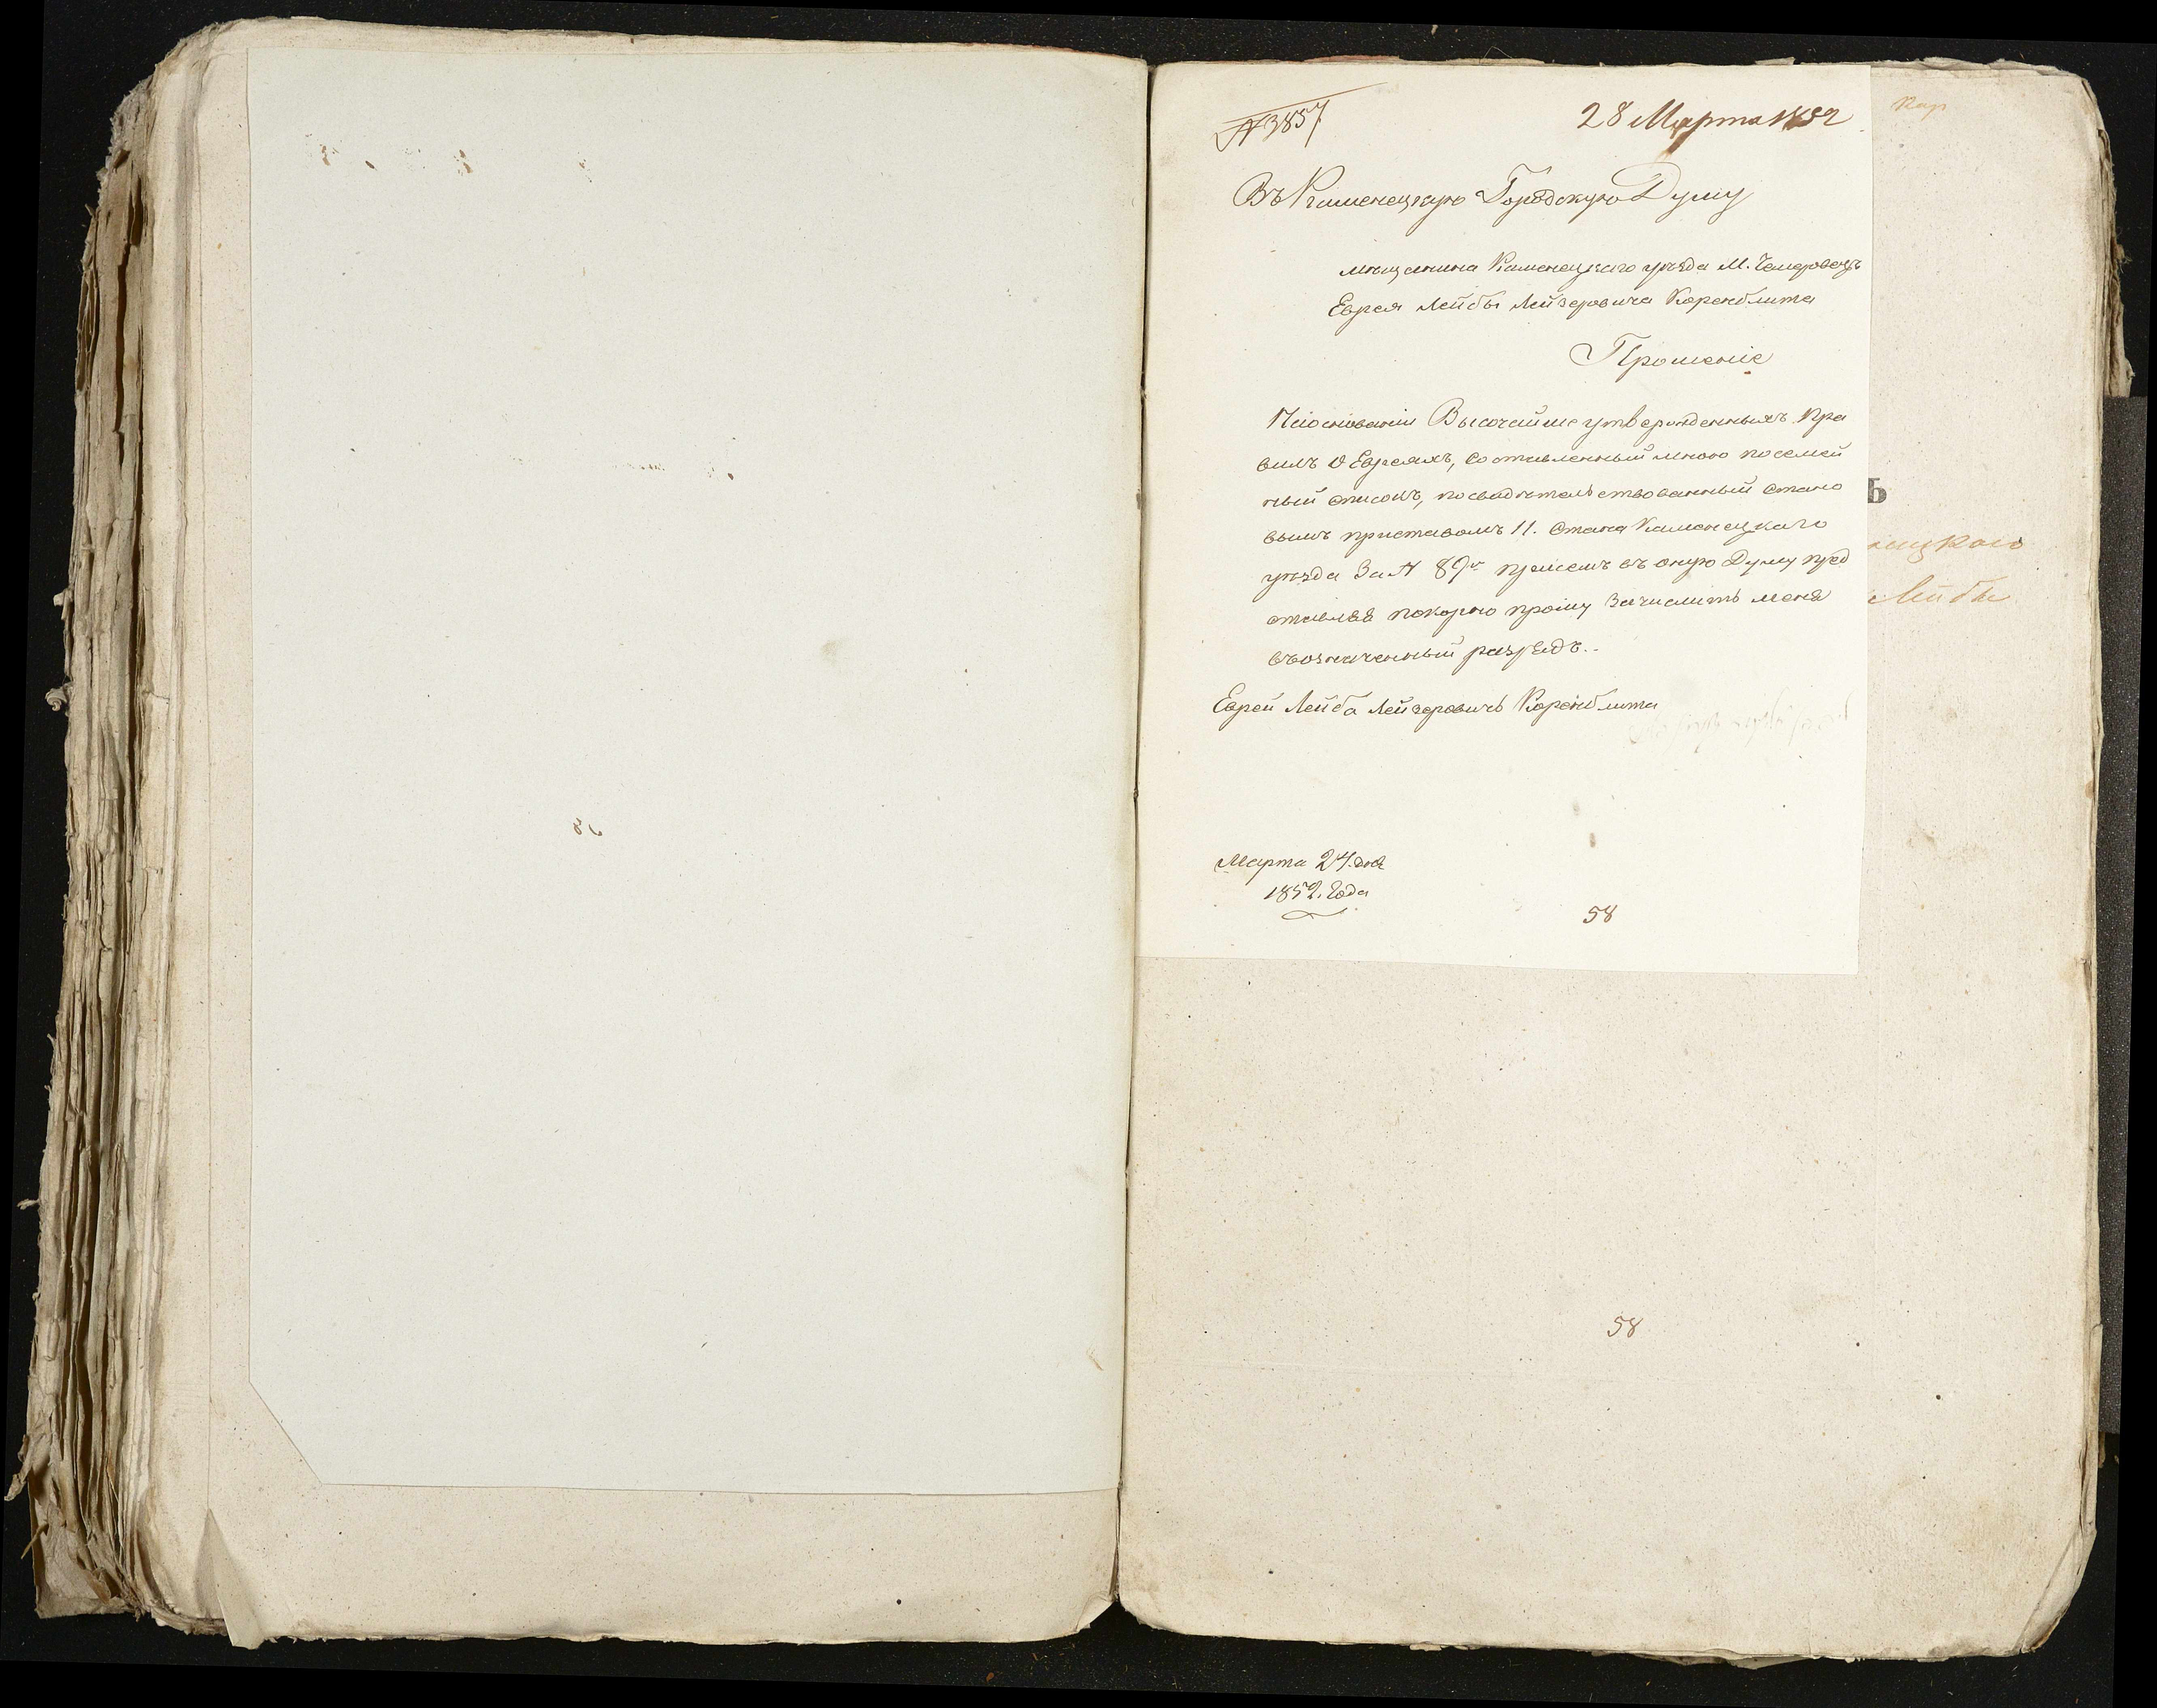 № 3857
28 Марта 1852
Въ Каменецкую Городскую Думу
мещанина Каменецкаго уезда М. Чемеровецъ
Еврея Лейбы Лейзеровича Коренблита
Прошеніе
На основаніи Высочайше утвержденныхъ пра
вилъ О Евреяхъ, составленный мною посемей
ный списокъ, посвидетельствованный Стано
вымъ приставомъ 11. Стана Каменецкаго
уезда За № 89м при семъ въ оную Думу пред
ставляя покорно прошу Зачислить меня
въ означенный разрядъ..
Еврей Лейба Лейзеровичъ Коренблитъ
Марта 27. дня
1852. Года
58
58
Лейбы